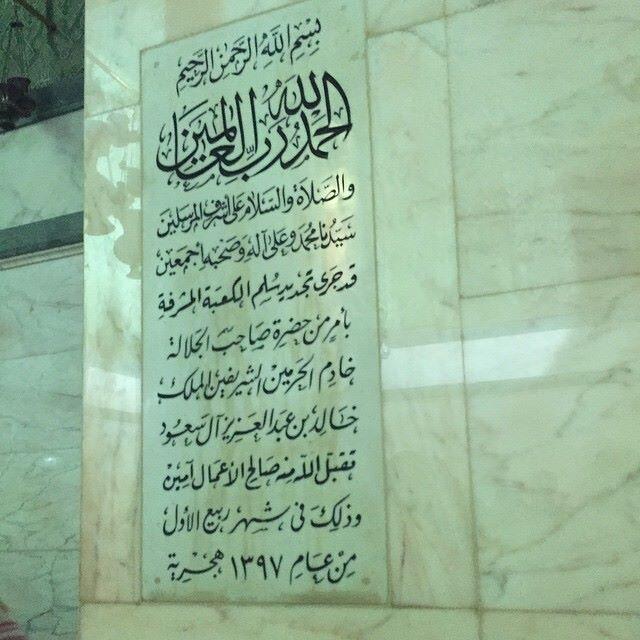 بِسْمِ اللهِ الرَّحْمٰنِ الرَّحِيْمِ
الحمد لله رب العالمين
والصلاة والسلام على أشرف المرسلين
سيدنا محمد وعلى آله وصحبه أجمعين
قد جرى تجديد سلم الكعبة المشرفة
بأمر من حضرة صاحب الجلالة
خادم الحرمين الشريفين الملك
خالد بن عبد العزيز آل سعود
تقبل الله منه صالح الأعمال آمين
وذلك في شهر ربيع الأول
من عام ١٣٩٧ هجرية